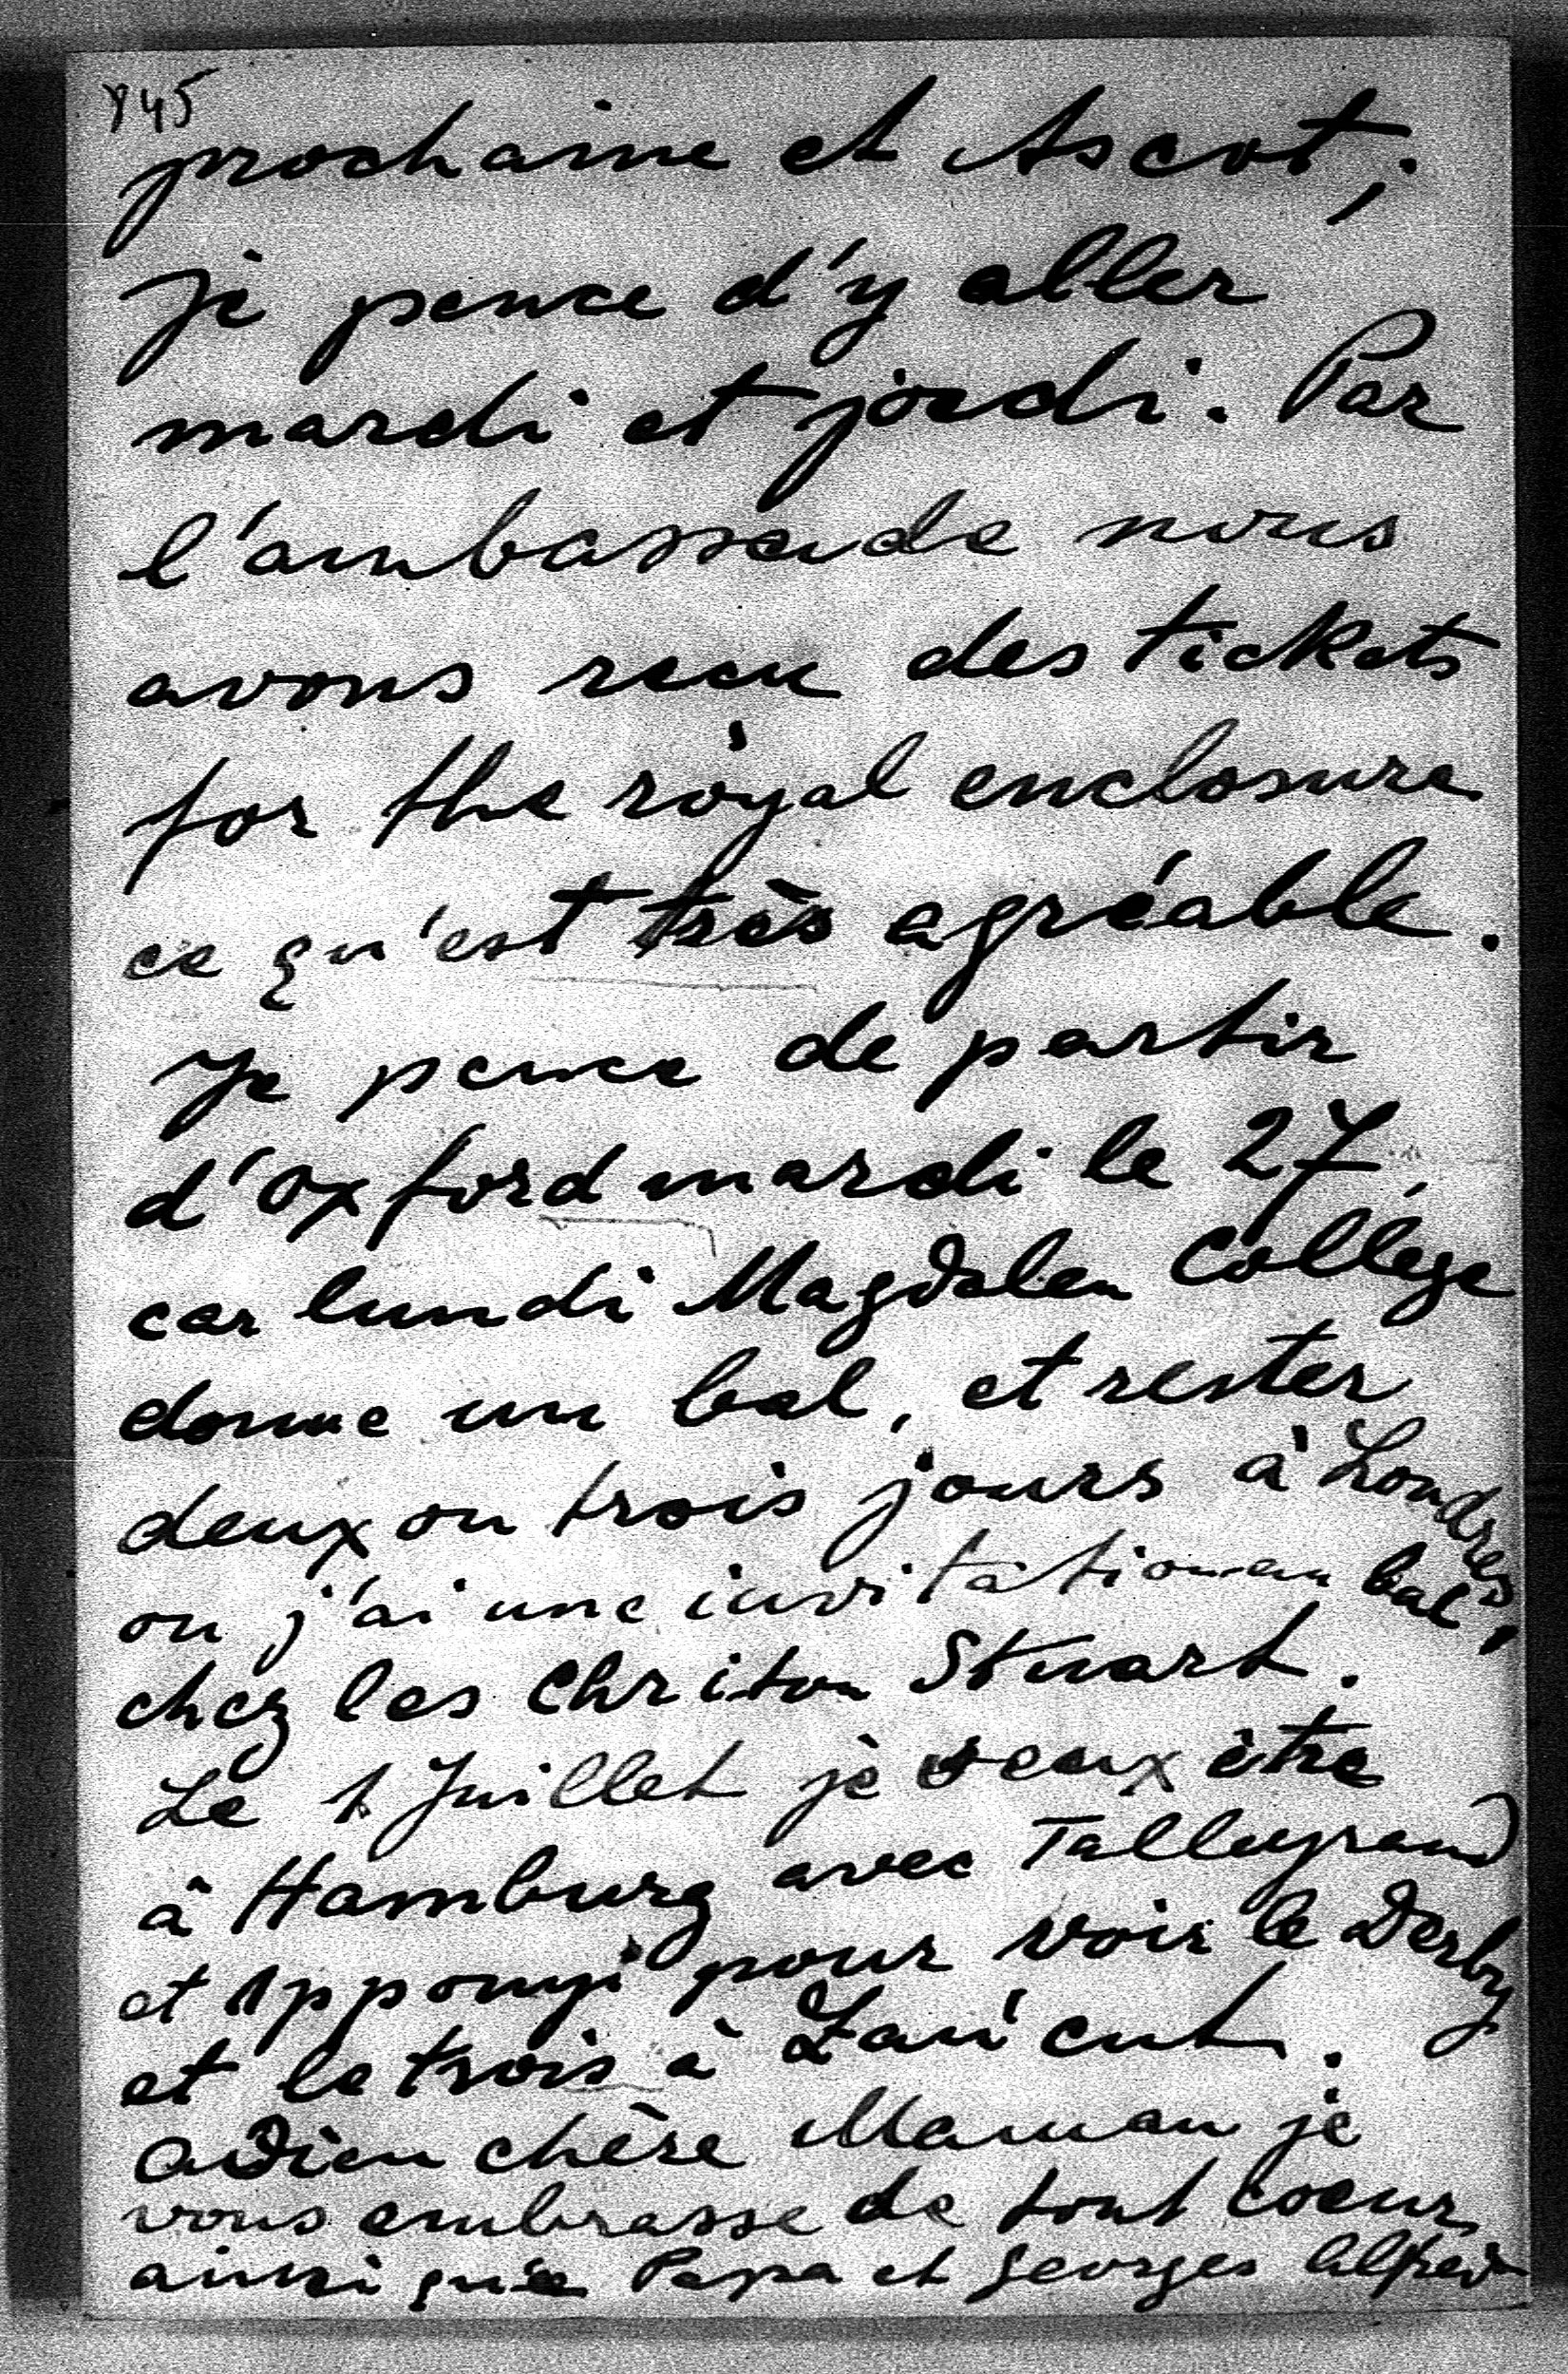 845
prochaine et Ascot,
je pence d'y aller
mardi et joedi. Par
l'ambassade nous
avons recu des tickets
for the royal enclosure
ce qu'est très agréable.
Je pence de partir
d'Oxford mardi le 27,
car lundi Magdalen Collège
donne un bal, et rester
deux ou trois jours à Londres,
ou j'ai une invitation au bal
chez les Chriton Stuart.
Le 1 Juillet je veux être
à Hamburg avec Talleyrand
et Apponyi pour voir le Derby
et le trois à Łańcut.
Adieu chère Maman je
vous embrasse de tout coeur
ainsi que Papa et Georges Alfred